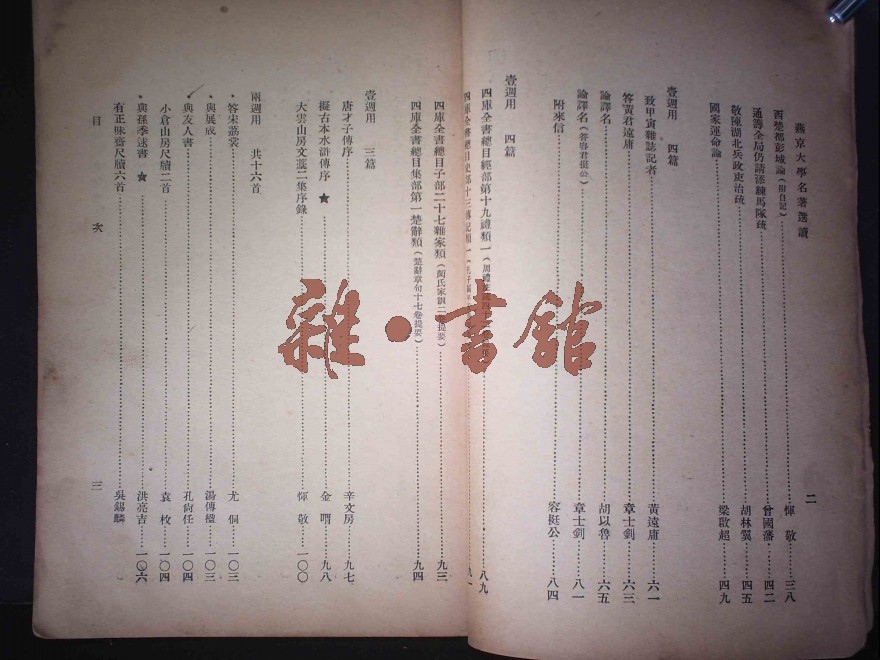 燕京大學名著選讀
二
西楚都彭城論(附自記)……惲敬……三八
通籌全局仍請添練馬隊疏……曾國藩……四二
敬陳湖北兵政吏治疏……胡林翼……四五
國家運命論……梁啟超……四九
壹週用 四篇
致甲寅雜誌記者……黃遠庸……六一
答黃君遠庸……章士釗……六三
論譯名……胡以魯……六五
論譯名(答容君挺公)……章士釗……八一
附來信……容挺公……八四
壹週用 四篇
四庫全書總目經部第十九禮類一……八九
四庫全書總目史部十三傳記類一……九一
四庫全書總目子部二十七雜家類……九三
四庫全書總目集部第一楚辭類(楚辭章句十七卷提要)……九四
壹週用 三篇
唐才子傳序……辛文房……九七
擬古本水滸傳序★……金喟……九八
大雲山房文藁二集序錄……惲敬……一〇〇
兩週用 共十六首
答宋荔裳……尤侗……一〇三
與展成……湯傳楹……一〇三
與友人書……孔尙任……一〇四
小倉山房尺牘二首……袁枚……一〇四
與孫季逑書★……洪亮吉……一〇六
有正味齋尺牘六首……吳錫麟
目次
三
雜·書館